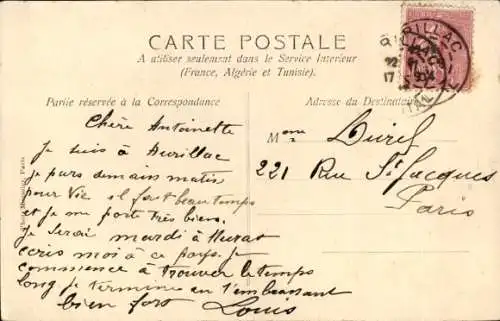 CARTE POSTALE
A utiliser seulement dans le Service Intérieur
(France, Algérie et Tunisie).
Partie réservée à la Correspondance
Adresse du Destinataire
AURILLAC
22
17 04
CANTAL
Chère Antoinette
Je suis à Aurillac
je pars demain matin
pour Vic il fait beau temps
et je me porte très bien.
Je serai mardi à Murat
ecris moi à ce pays. Je
commence à trouver le temps
long je termine en t'embrassant
bien fort Louis
Mme Duril
221 Rue St Jacques
Paris